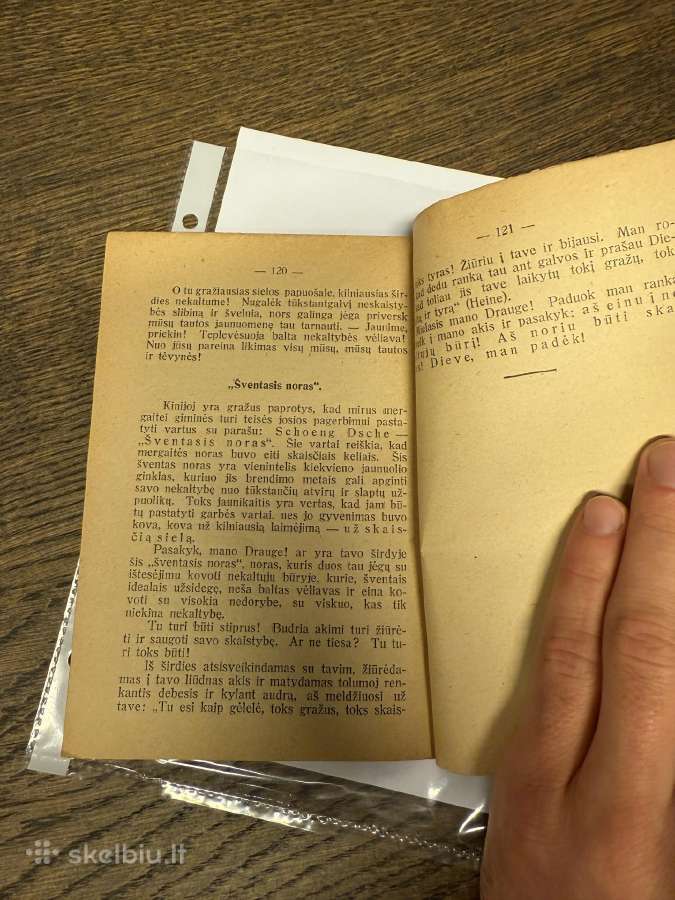 — 120 —
O tu gražiausias sielos papuošale, kilniausias šir-
dies nekaltume! Nugalėk tūkstangalvį neskaistybės
slibiną ir švelnia, nors galinga jėga priversk
mūsų tautos jaunuomenę tau tarnauti. — Jaunime,
priekin! Teplevėsuoja balta nekaltybės vėliava!
Nuo jūsų pareina likimas visų mūsų, mūsų tautos
ir tėvynės!
„Šventasis noras“.
Kinijoj yra gražus paprotys, kad mirus mer-
gaitei giminės turi teisės josios pagerbimui pasta-
tyti vartus su parašu: Schoeng Dsche —
„Šventasis noras“. Šie vartai reiškia, kad
mergaitės noras buvo eiti skaisčiais keliais. Šis
šventas noras yra vienintelis kiekvieno jaunuolio
ginklas, kuriuo jis brendimo metais gali apginti
savo nekaltybę nuo tūkstančių atvirų ir slaptų už-
puolikų. Toks jaunikaitis yra vertas, kad jam bū-
tų pastatyti garbės vartai, nes jo gyvenimas buvo
kova, kova už kilniausią laimėjimą — už skais-
čią sielą.
Pasakyk, mano Drauge! ar yra tavo širdyje
šis „šventasis noras“, noras, kuris duos tau jėgų su
ištesėjimu kovoti nekaltųjų būryje, kurie, šventais
idealais užsidegę, neša baltas vėliavas ir eina ko-
voti su visokia nedorybe, su viskuo, kas tik
niekina nekaltybę.
Tu turi būti stiprus! Budria akimi turi žiūrė-
ti ir saugoti savo skaistybę. Ar ne tiesa? Tu tu-
ri toks būti!
Iš širdies atsisveikindamas su tavim, žiūrėda-
mas į tavo liūdnas akis ir matydamas tolumoj ren-
kantis debesis ir kylant audrą, aš meldžiuosi už
tave: „Tu esi kaip gėlelė, toks gražus, toks skais-
— 121 —
tyras! Žiūriu į tave ir bijausi. Man ro-
dedu ranką tau ant galvos ir prašau Die-
toliau jis tave laikytų tokį gražų, tok
ir tyrą“ (Heine).
mano Drauge! Paduok man ranką
į mano akis ir pasakyk: aš einu į ne
būrį! Aš noriu būti ska
Dieve, man padėk!
skelbiu.lt